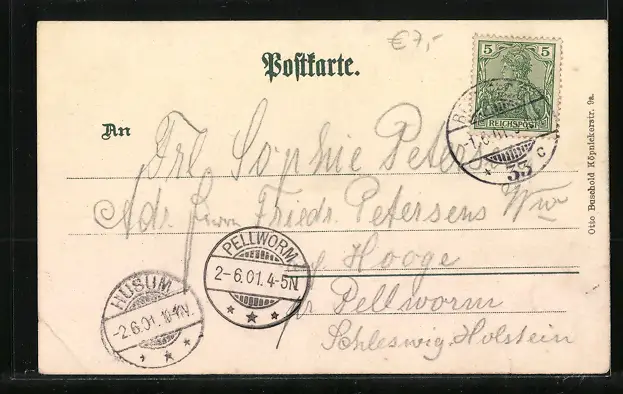 €7,-
Postkarte.
5 5
REICHSPOST
1.6.01.
33 c
An
Frl. Sophie Petersen
Adr. Herrn Friedr. Petersens Wwe
Hooge
pr Pellworm
Schleswig Holstein
PELLWORM
2-6.01.4-5N.
HUSUM
-2.6.01.
Otto Buschold Köpnickerstr. 9a.